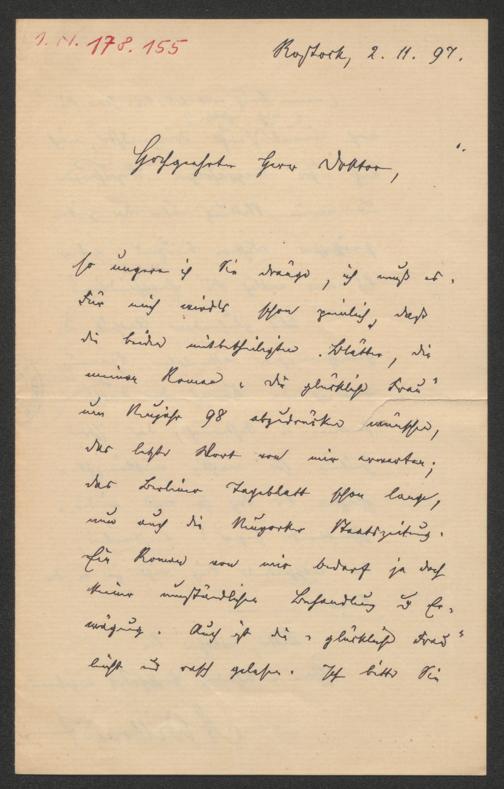 I. N. 178.155
Rostock, 2. 11. 97.
Hochgeehrter Herr Doktor,
so ungern ich Sie dränge, ich muß es.
Für mich wird's schon peinlich, daß
die beiden mitbetheiligten Blätter, die
meinen Roman „die glückliche Frau"
um Neujahr 98 abzudrucken wünschen,
das letzte Wort von mir erwarten;
das Berliner Tageblatt schon lange,
nun auch die Neuyorker Staatszeitung.
Ein Roman von mir bedarf ja doch
keiner umständlichen Behandlung u Er-
wägung. Auch ist die „glückliche Frau"
leicht u rasch gelesen. Ich bitte Sie